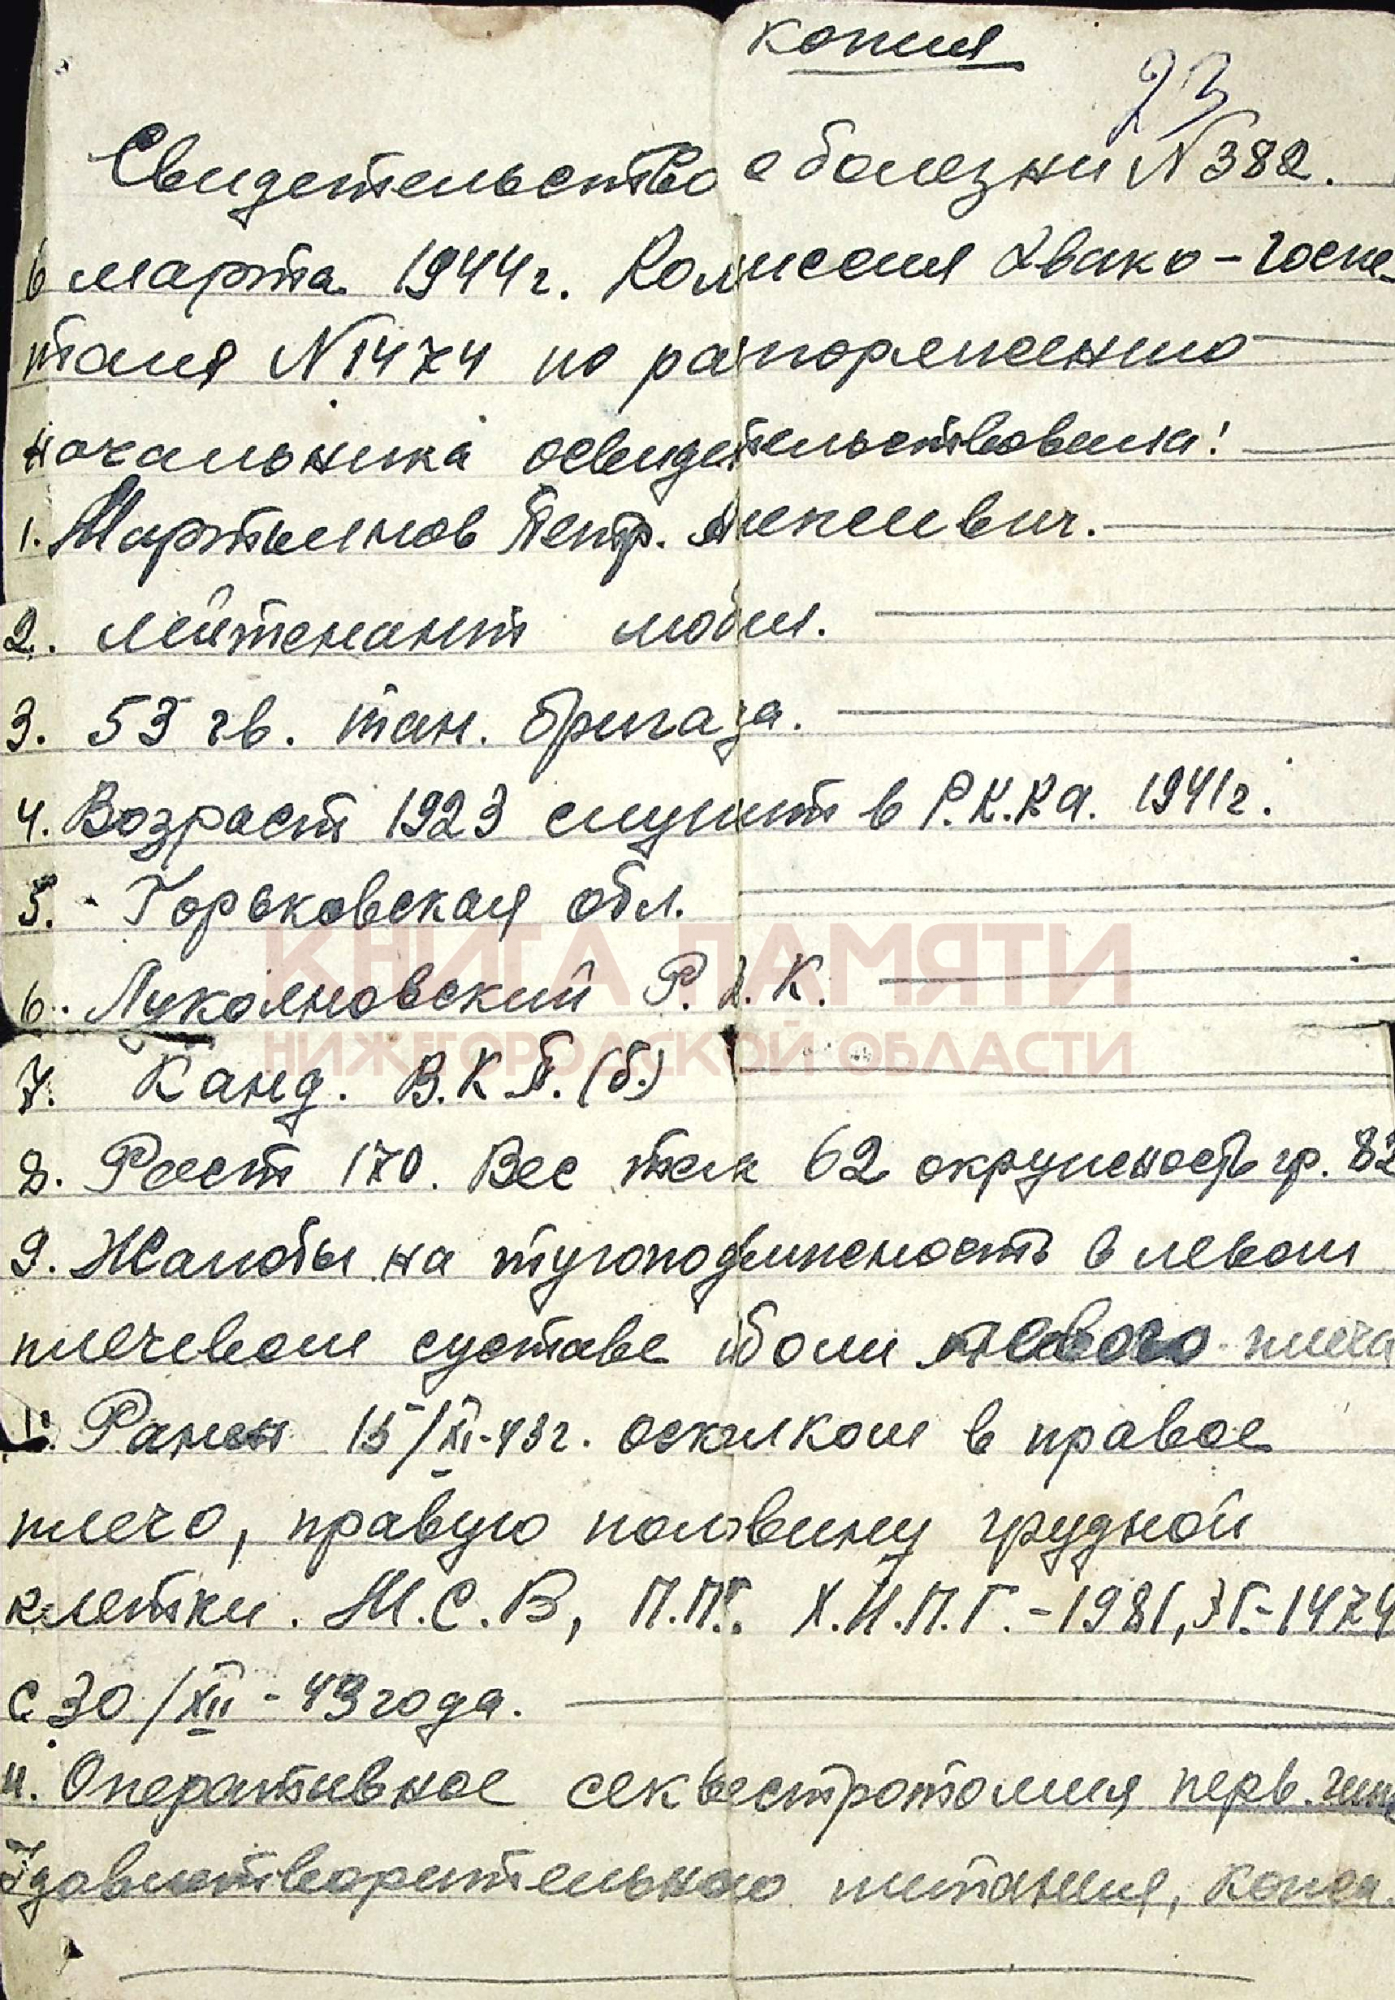 копия
23
Свидетельство о болезни N 382.
6 марта 1944 г. Комиссия эвако-госпи-
таля N 1474 по рапоряжению
начальника освидетельствовала:
1. Мартынов Петр.
2. лейтенант мобил.
3. 53 гв. тан. бригада.
4. Возраст 1923 служит в Р.К.К.А. 1941 г.
5. Горьковская обл.
6. Лукояновский Р.В.К.
КНИГА ПАМЯТИ
НИЖЕГОРОДСКОЙ ОБЛАСТИ
7. Канд. В.К.П.(б.)
8. Рост 170. Вес тел 62 окружность гр. 82
9. Жалобы на тугоподвижность в левом
плечевом суставе боли левого плеча
Ранен 15/XI-43 г. осколком в правое
плечо, правую половину грудной
клетки. М.С.В, П.П.Г. Х.П.П.Г.-1981, ЭГ-1474
с 30/XII-43 года.
11. Оперативное секвестротомия перв.
Удовлетворительного питания, кожа